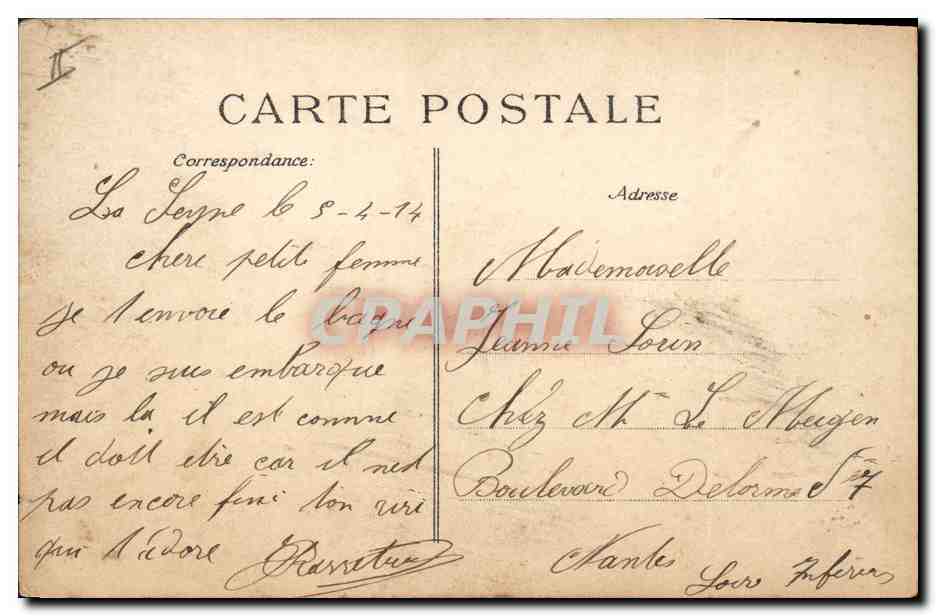 II
CARTE POSTALE
Correspondance:
La Seyne le 5-4-14
chere petite femme
je t'envoie le bagne
ou je suis embarque
mais la il est comme
il doit etre car il nest
pas encore fini ton riri
qui t'adore
Adresse
Mademoiselle
Jeanne Sorin
Chéz Me Le
Boulevard Delorme 7
Nantes
Loire Inférieure
CPAPHIL